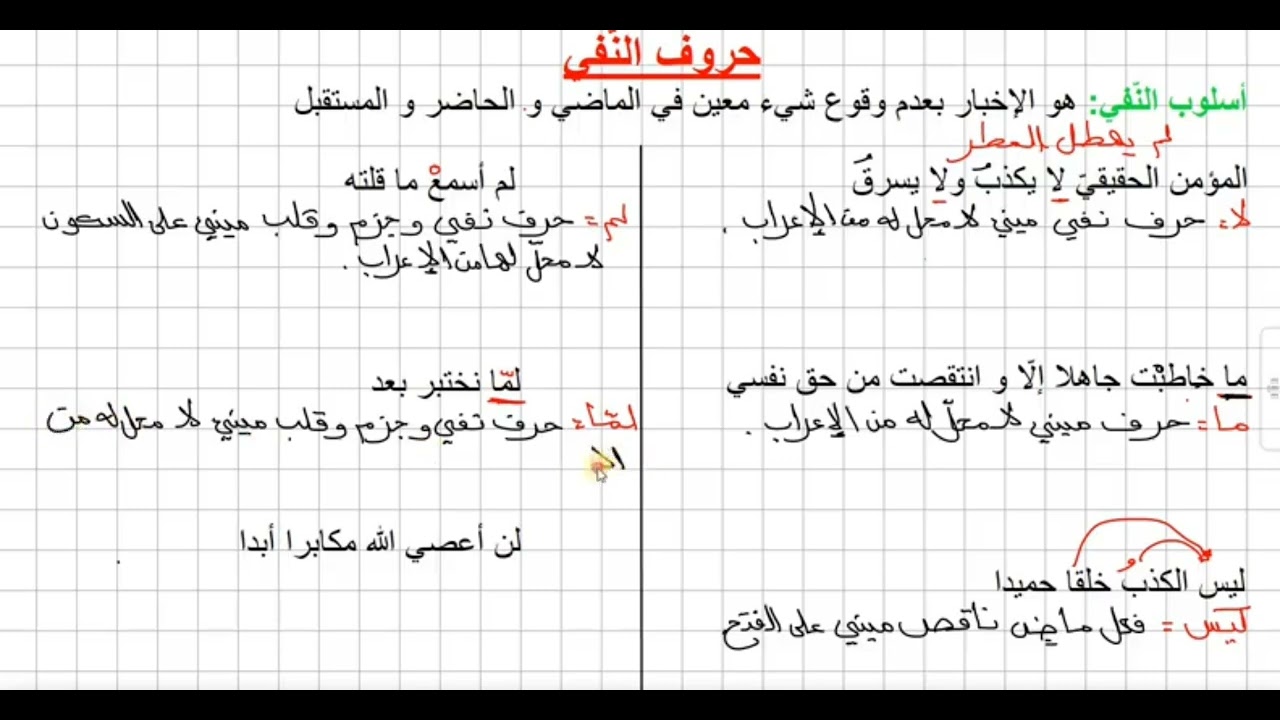 حروف النّفي
أسلوب النّفي: هو الإخبار بعدم وقوع شيء معين في الماضي و الحاضر و المستقبل
لم يهطل المطر
المؤمن الحقيقيَ لا يكذبُ ولا يسرقُ
لا: حرف نفي مبني لا محل له من الإعراب.
ما خاطبْت جاهلا إلّا و انتقصت من حق نفسي
ما: حرف مبني لا محلّ له من الإعراب.
ليس الكذبُ خلقا حميدا
ليس = فعل ماضٍ ناقص مبني على الفتح
لم أسمعْ ما قلته
لم = حرف نفي وجزم وقلب مبني على السكون
لا محلّ لها من الإعراب.
لمّا نختبر بعد
لمّا: حرف نفي وجزم وقلب مبني لا محل له من
الا
لن أعصي الله مكابرا أبدا